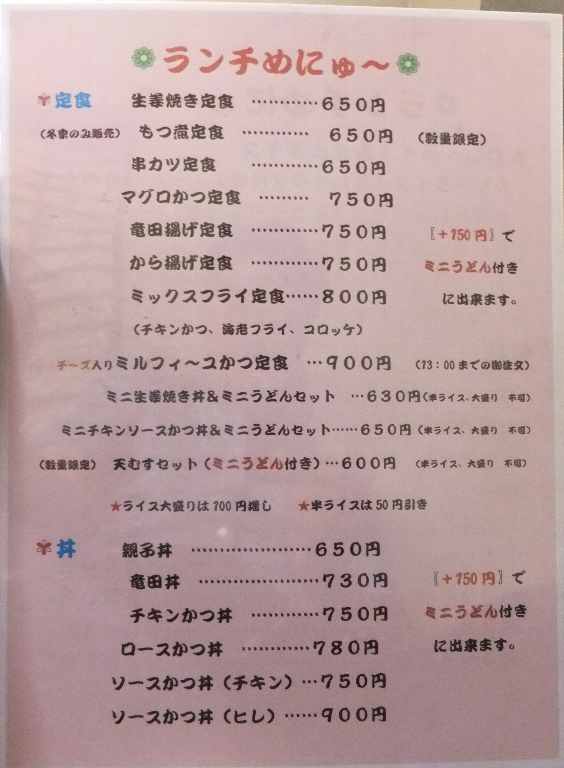 ランチめにゅ〜
定食 生姜焼き定食 …………650円
（冬季のみ販売） もつ煮定食 ………… 650円 （数量限定）
串カツ定食 …………650円
マグロかつ定食 ……… 750円
竜田揚げ定食 …………750円 〖＋150円〗で
から揚げ定食 …………750円 ミニうどん付き
ミックスフライ定食……800円 に出来ます。
（チキンかつ、海老フライ、コロッケ）
チーズ入りミルフィ〜ユかつ定食 …900円 （13：00までの御注文）
ミニ生姜焼き丼＆ミニうどんセット …630円（半ライス、大盛り 不可）
ミニチキンソースかつ丼＆ミニうどんセット……650円（半ライス、大盛り 不可）
（数量限定） 天むすセット（ミニうどん付き）…600円 （半ライス、大盛り 不可）
★ライス大盛りは100円増し ★半ライスは50円引き
丼 親子丼 …………………650円
竜田丼 …………………730円 〖＋150円〗で
チキンかつ丼 …………750円 ミニうどん付き
ロースかつ丼 …………780円 に出来ます。
ソースかつ丼（チキン）…750円
ソースかつ丼（ヒレ）……900円